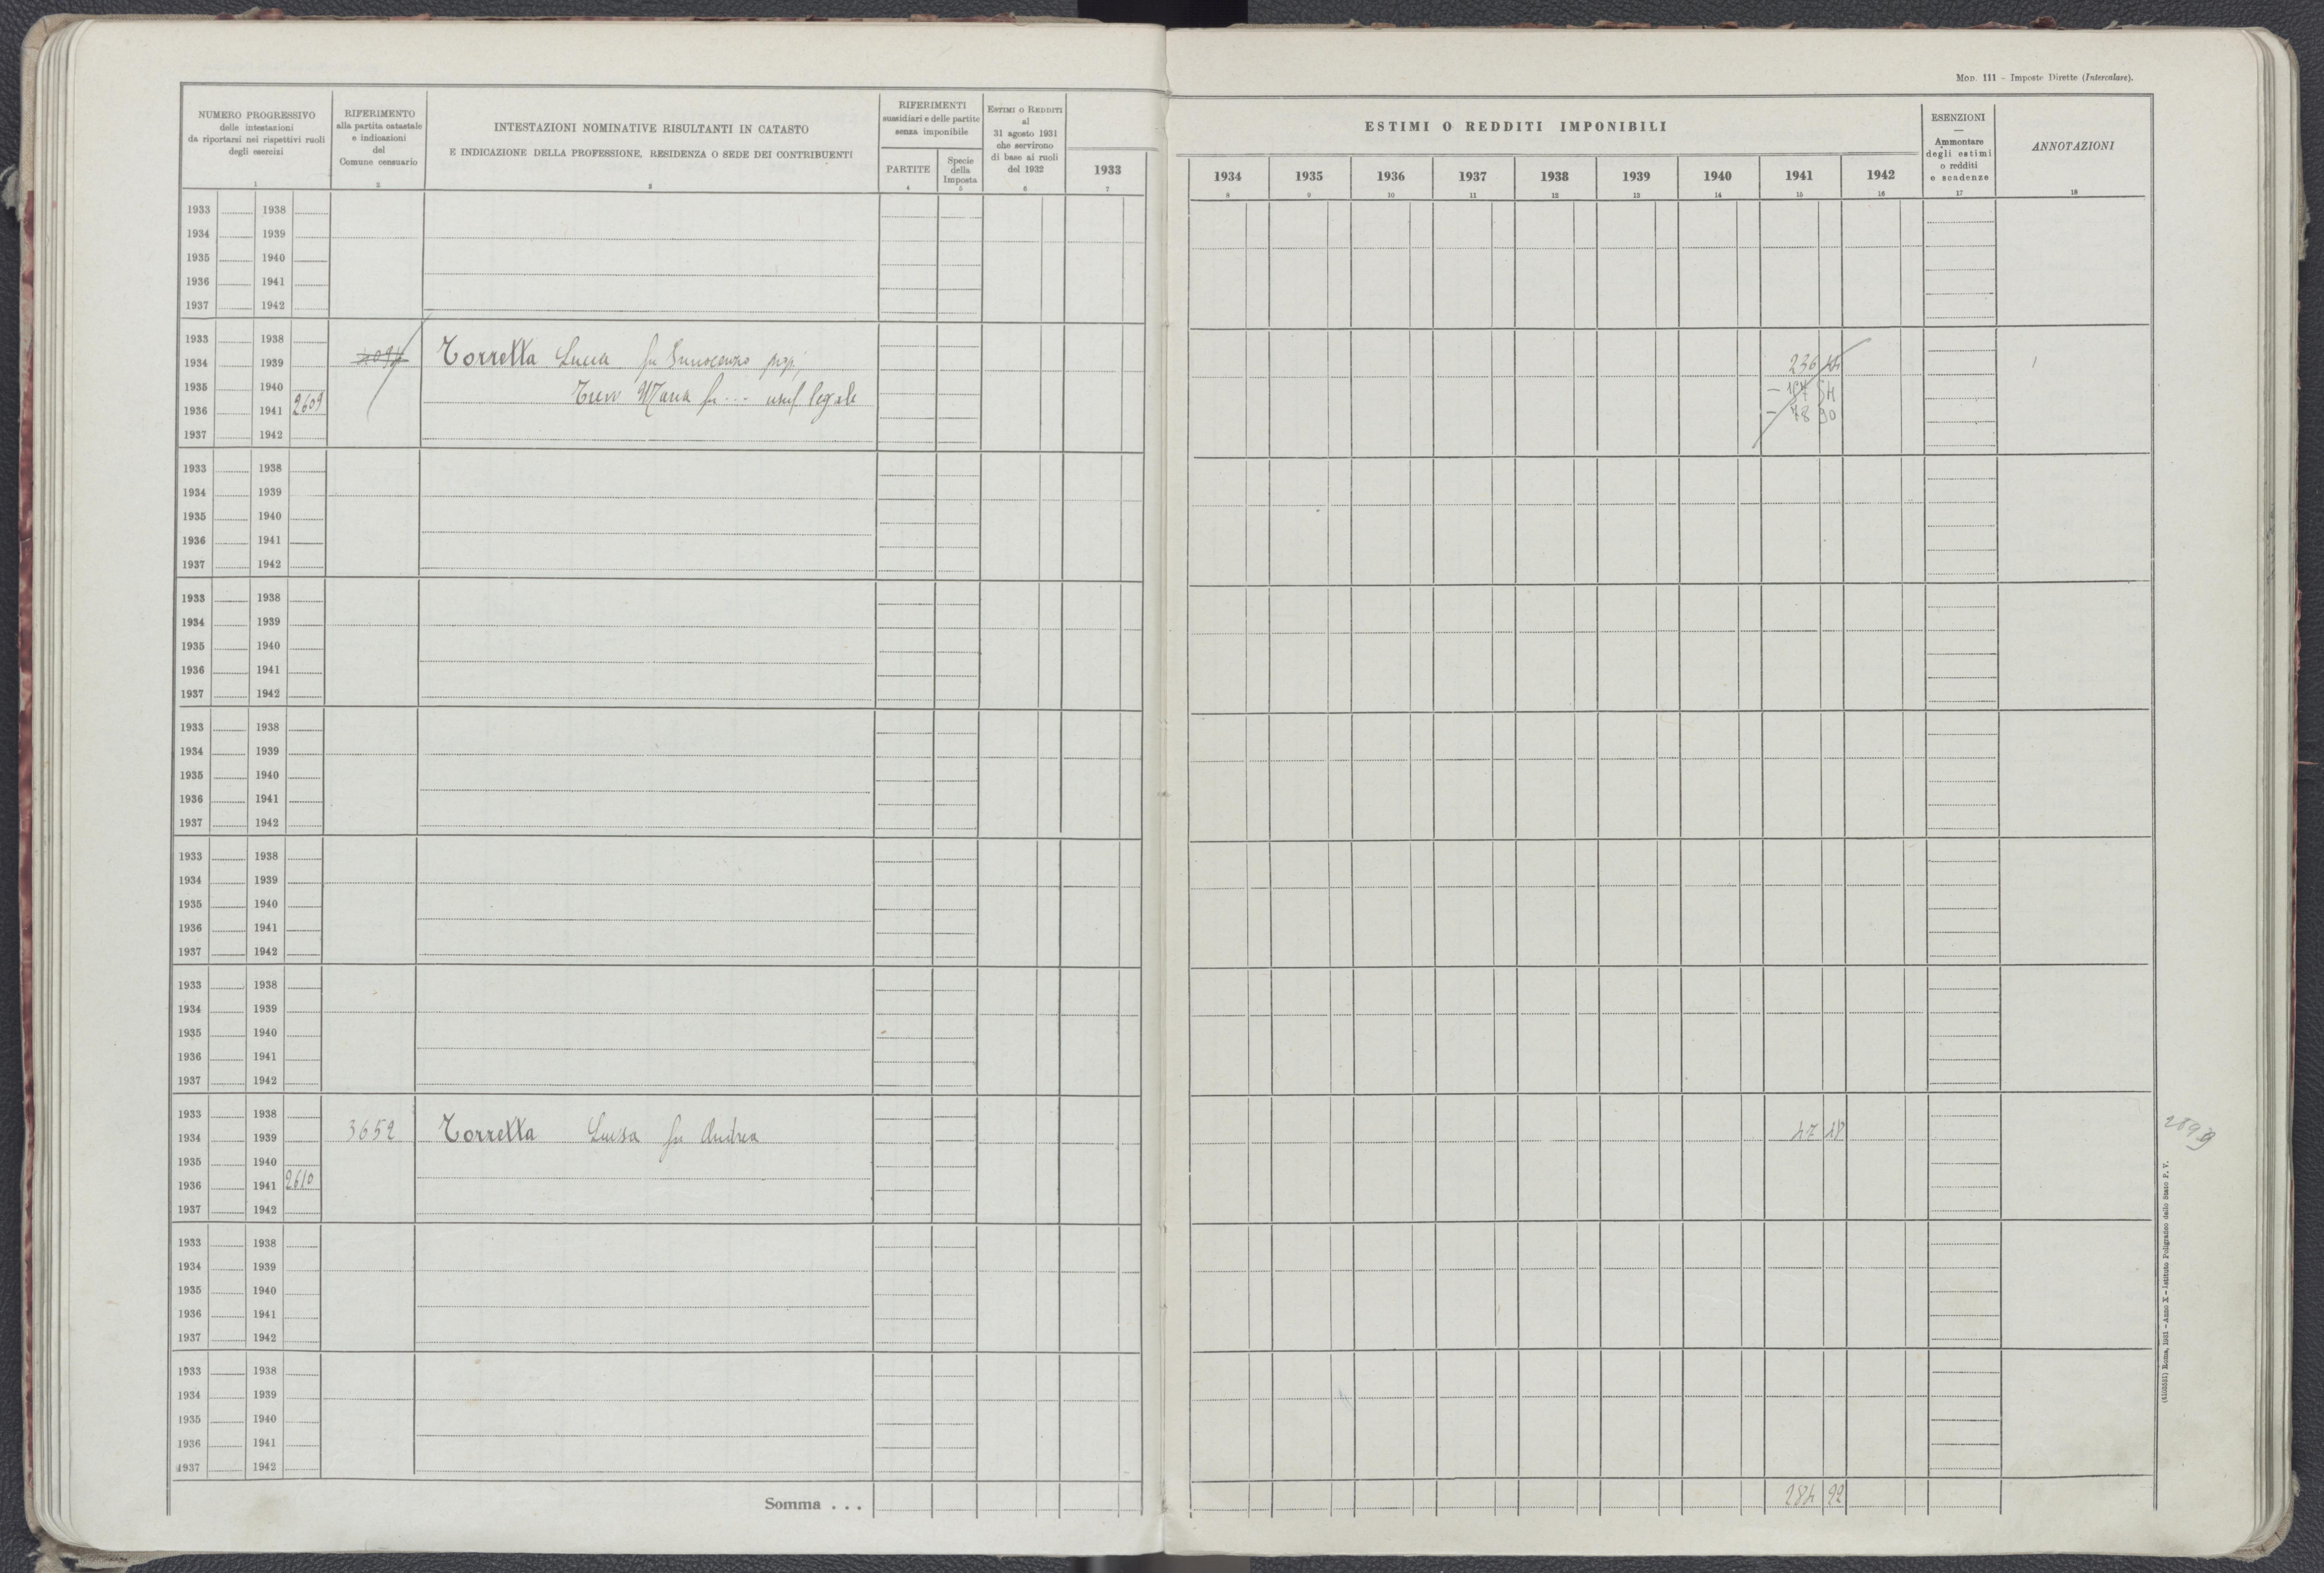 MOD. 111 - Imposte Dirette (Intercalare).
NUMERO PROGRESSIVO
delle intestazioni
da riportarsi nei rispettivi ruoli
degli esercizi
1
RIFERIMENTO
alla partita catastale
e indicazioni
del
Comune censuario
2
INTESTAZIONI NOMINATIVE RISULTANTI IN CATASTO
E INDICAZIONE DELLA PROFESSIONE, RESIDENZA O SEDE DEI CONTRIBUENTI
3
RIFERIMENTI
sussidiari e delle partite
senza imponibile
PARTITE
4
Specie
della
Imposta
5
ESTIMI O REDDITI
al
31 agosto 1931
che servirono
di base ai ruoli
del 1932
6
1933
7
ESTIMI O REDDITI IMPONIBILI
1934 1935 1936 1937 1938 1939 1940 1941 1942
8 9 10 11 12 13 14 15 16
ESENZIONI
—
Ammontare
degli estimi
o redditi
e scadenze
17
ANNOTAZIONI
18
1933 1938
1934 1939
1935 1940
1936 1941
1937 1942
1933 1938
1934 1939 Torretta Lucia fu Innocenzo prop;
1935 1940
1936 1941 2609 Maria fu ... usuf legale
1937 1942
236
78 90
1933 1938
1934 1939
1935 1940
1936 1941
1937 1942
1933 1938
1934 1939
1935 1940
1936 1941
1937 1942
1933 1938
1934 1939
1935 1940
1936 1941
1937 1942
1933 1938
1934 1939
1935 1940
1936 1941
1937 1942
1933 1938
1934 1939
1935 1940
1936 1941
1937 1942
1933 1938
1934 1939 3652 Torretta Luisa fu Andrea 47 18
1935 1940
1936 1941 2610
1937 1942
1933 1938
1934 1939
1935 1940
1936 1941
1937 1942
1933 1938
1934 1939
1935 1940
1936 1941
1937 1942
Somma . . . 284 22
(4103581) Roma, 1931 - Anno X - Istituto Poligrafico dello Stato P. V.